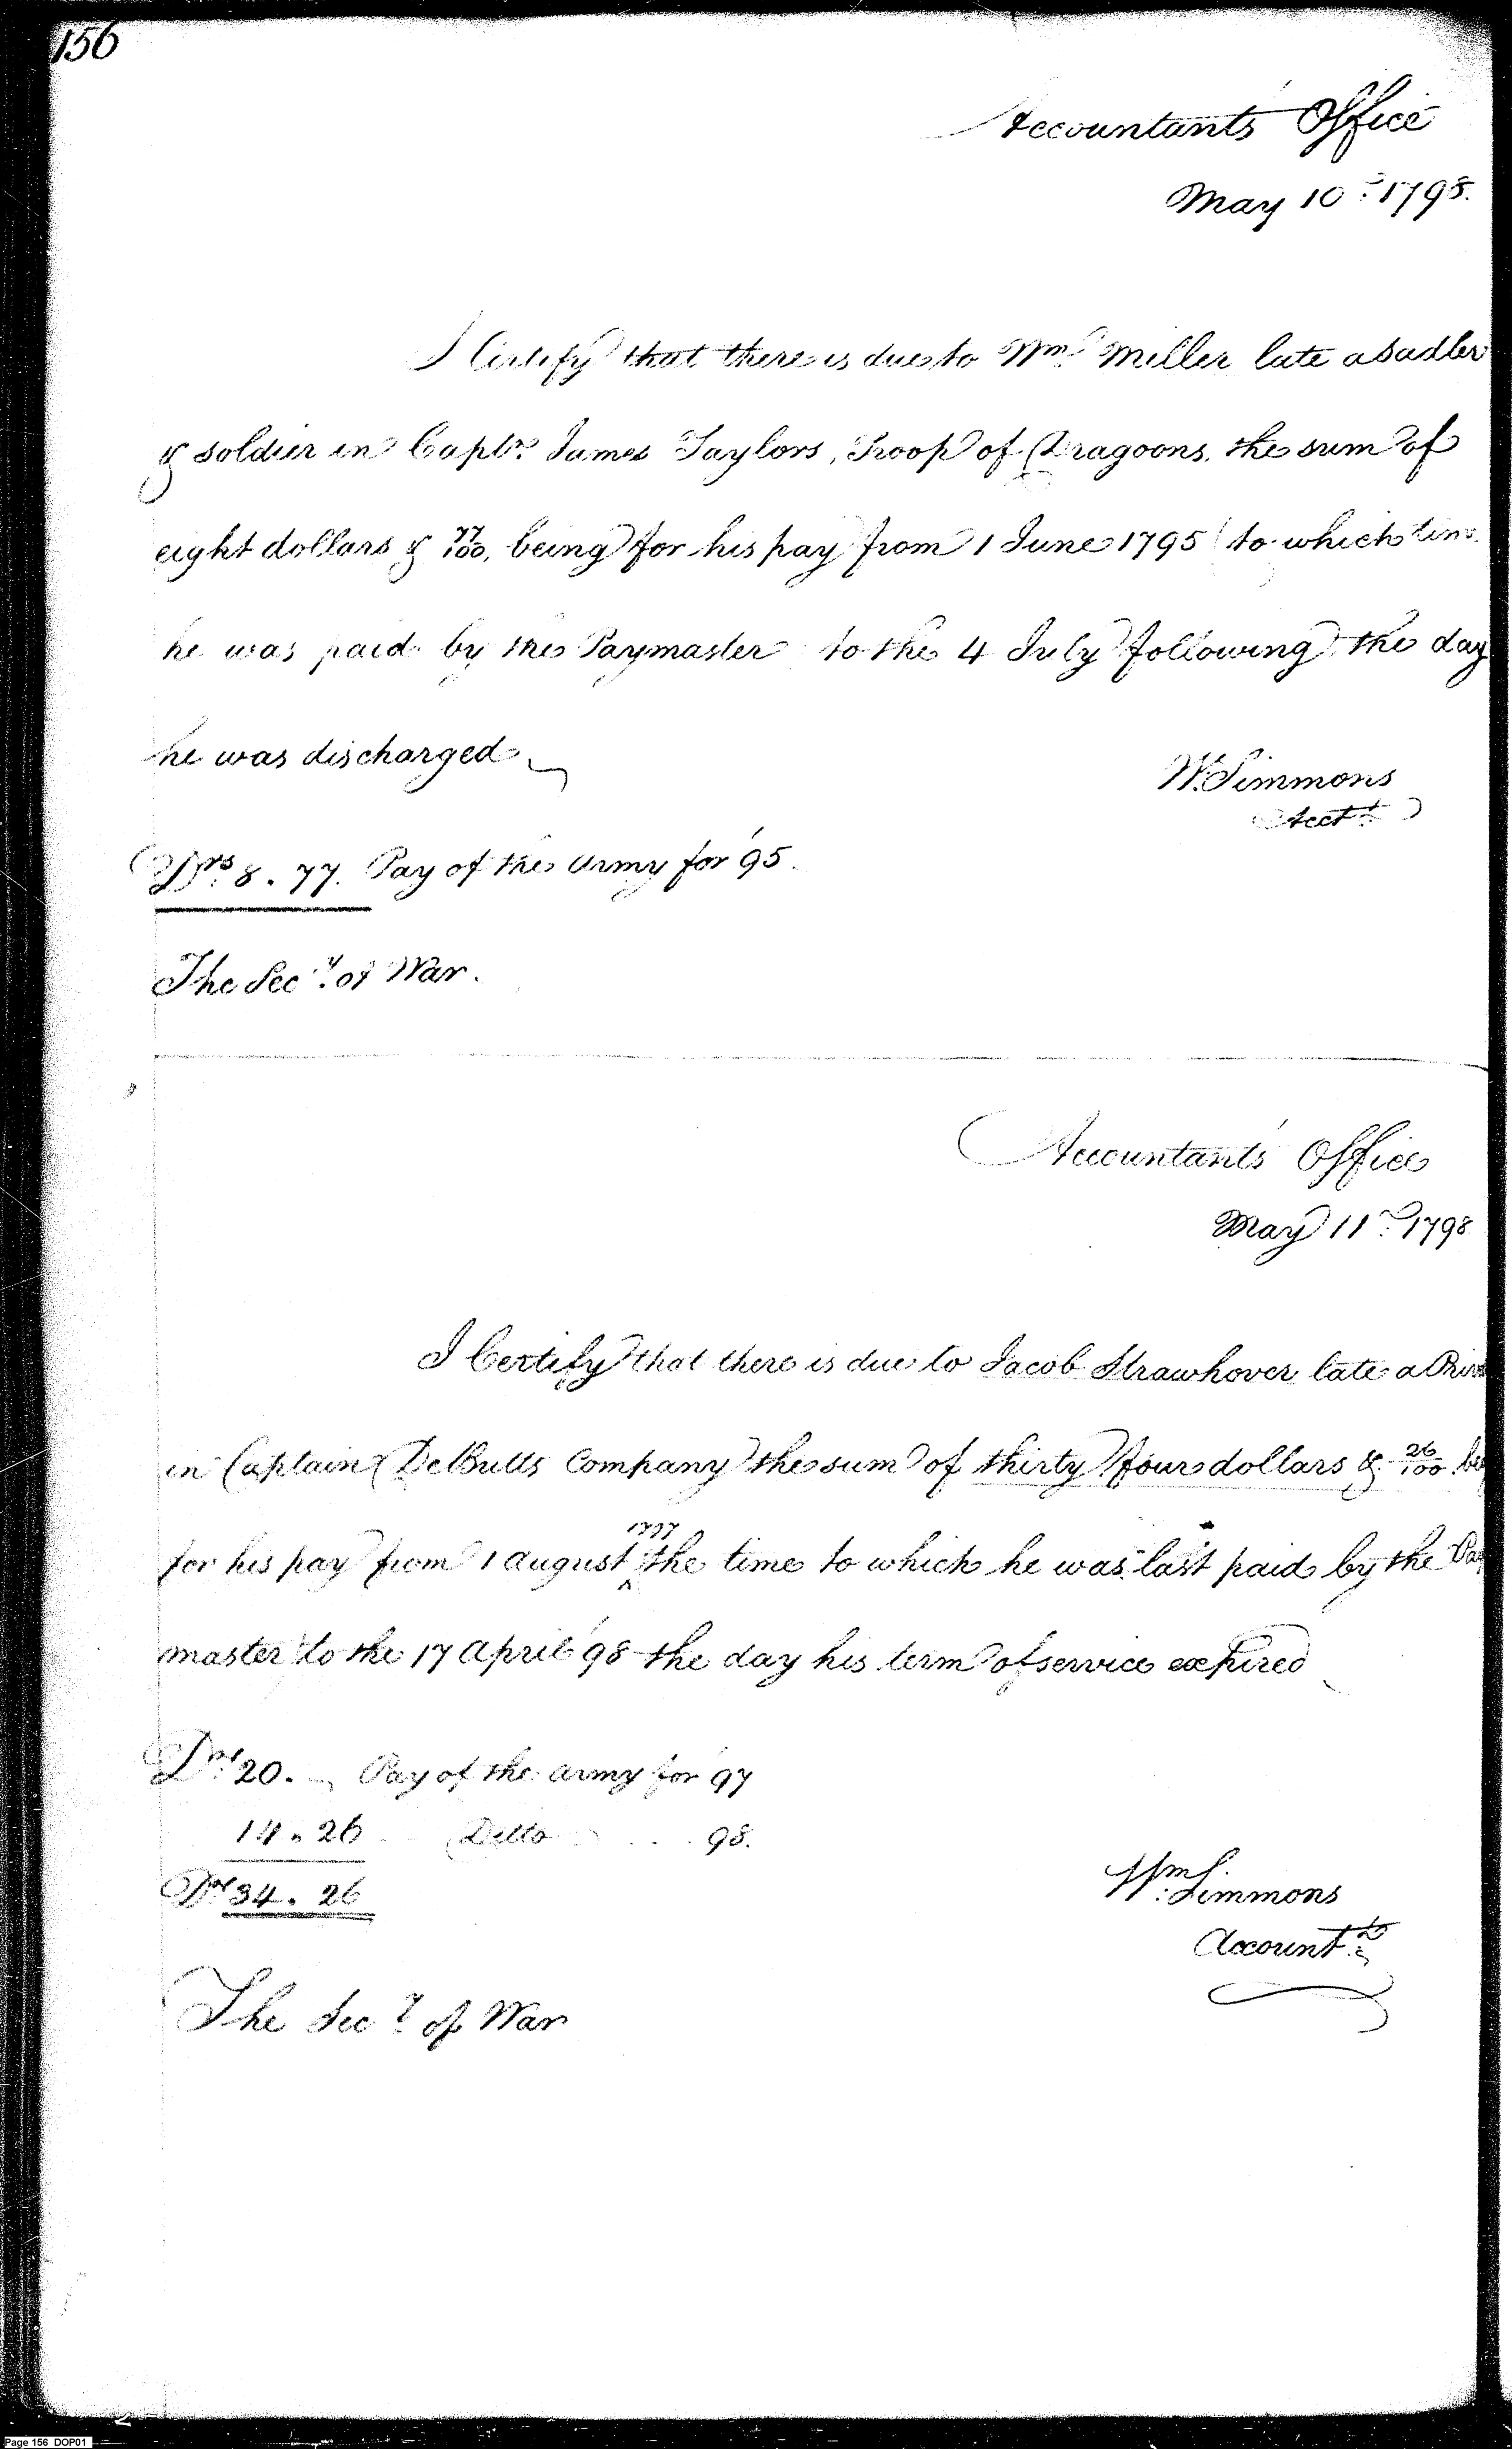 156
Accountants Office
May 10th 1798.
I Certify that there is due to Wm Miller late a Sadler
& soldier in Captn James Taylors, Troop of Dragoons, the sum of
eight dollars & 77/100, being for his pay from 1 June 1795 to which time
he was paid by the Paymaster to the 4 July following the day
he was discharged
W. Simmons
Acctt
Drs 8.77. Pay of the Army for '95.
The Secy of War.
Accountants Office
May 11th 1798
I Certify that there is due to Jacob Strawhover late a
in Captain DeButts Company the sum of thirty four dollars & 26/100
for his pay from 1 august 1797 the time to which he was last paid by the Pay
master to the 17 april '98 the day his term of service expired
Drs 20. Pay of the army for '97
14.26 Ditto 98.
Drs 34.26
Wm Simmons
Accountt
The Secy of War
Page 156 DOP01